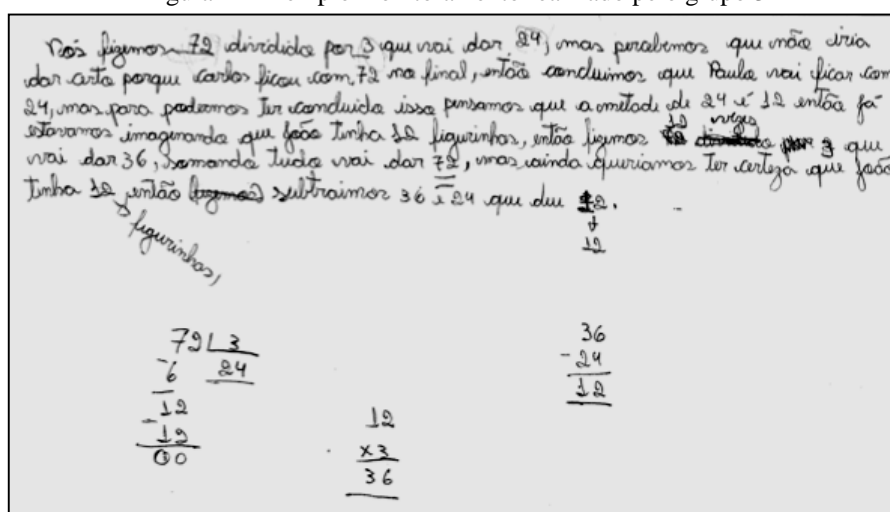 Nós fizemos 72 dividido por 3 que vai dar 24, mas percebemos que não iria
dar certo porque carlos ficou com 72 no final, então concluimos que Paula vai ficar com
24, mas para podermos Ter concluido isso pensamos que a metade de 24 é 12 então já
estavamos imaginando que joão Tinha 12 figurinhas, então fizemos 12 vezes 3 que
vai dar 36, somando tudo vai dar 72, mas ainda queriamos Ter certeza que joão
tinha 12 então subtraimos 36 e 24 que deu 12.
12
figurinhas,
72 3
-6 24
12
-12
00
12
x3
36
36
-24
12